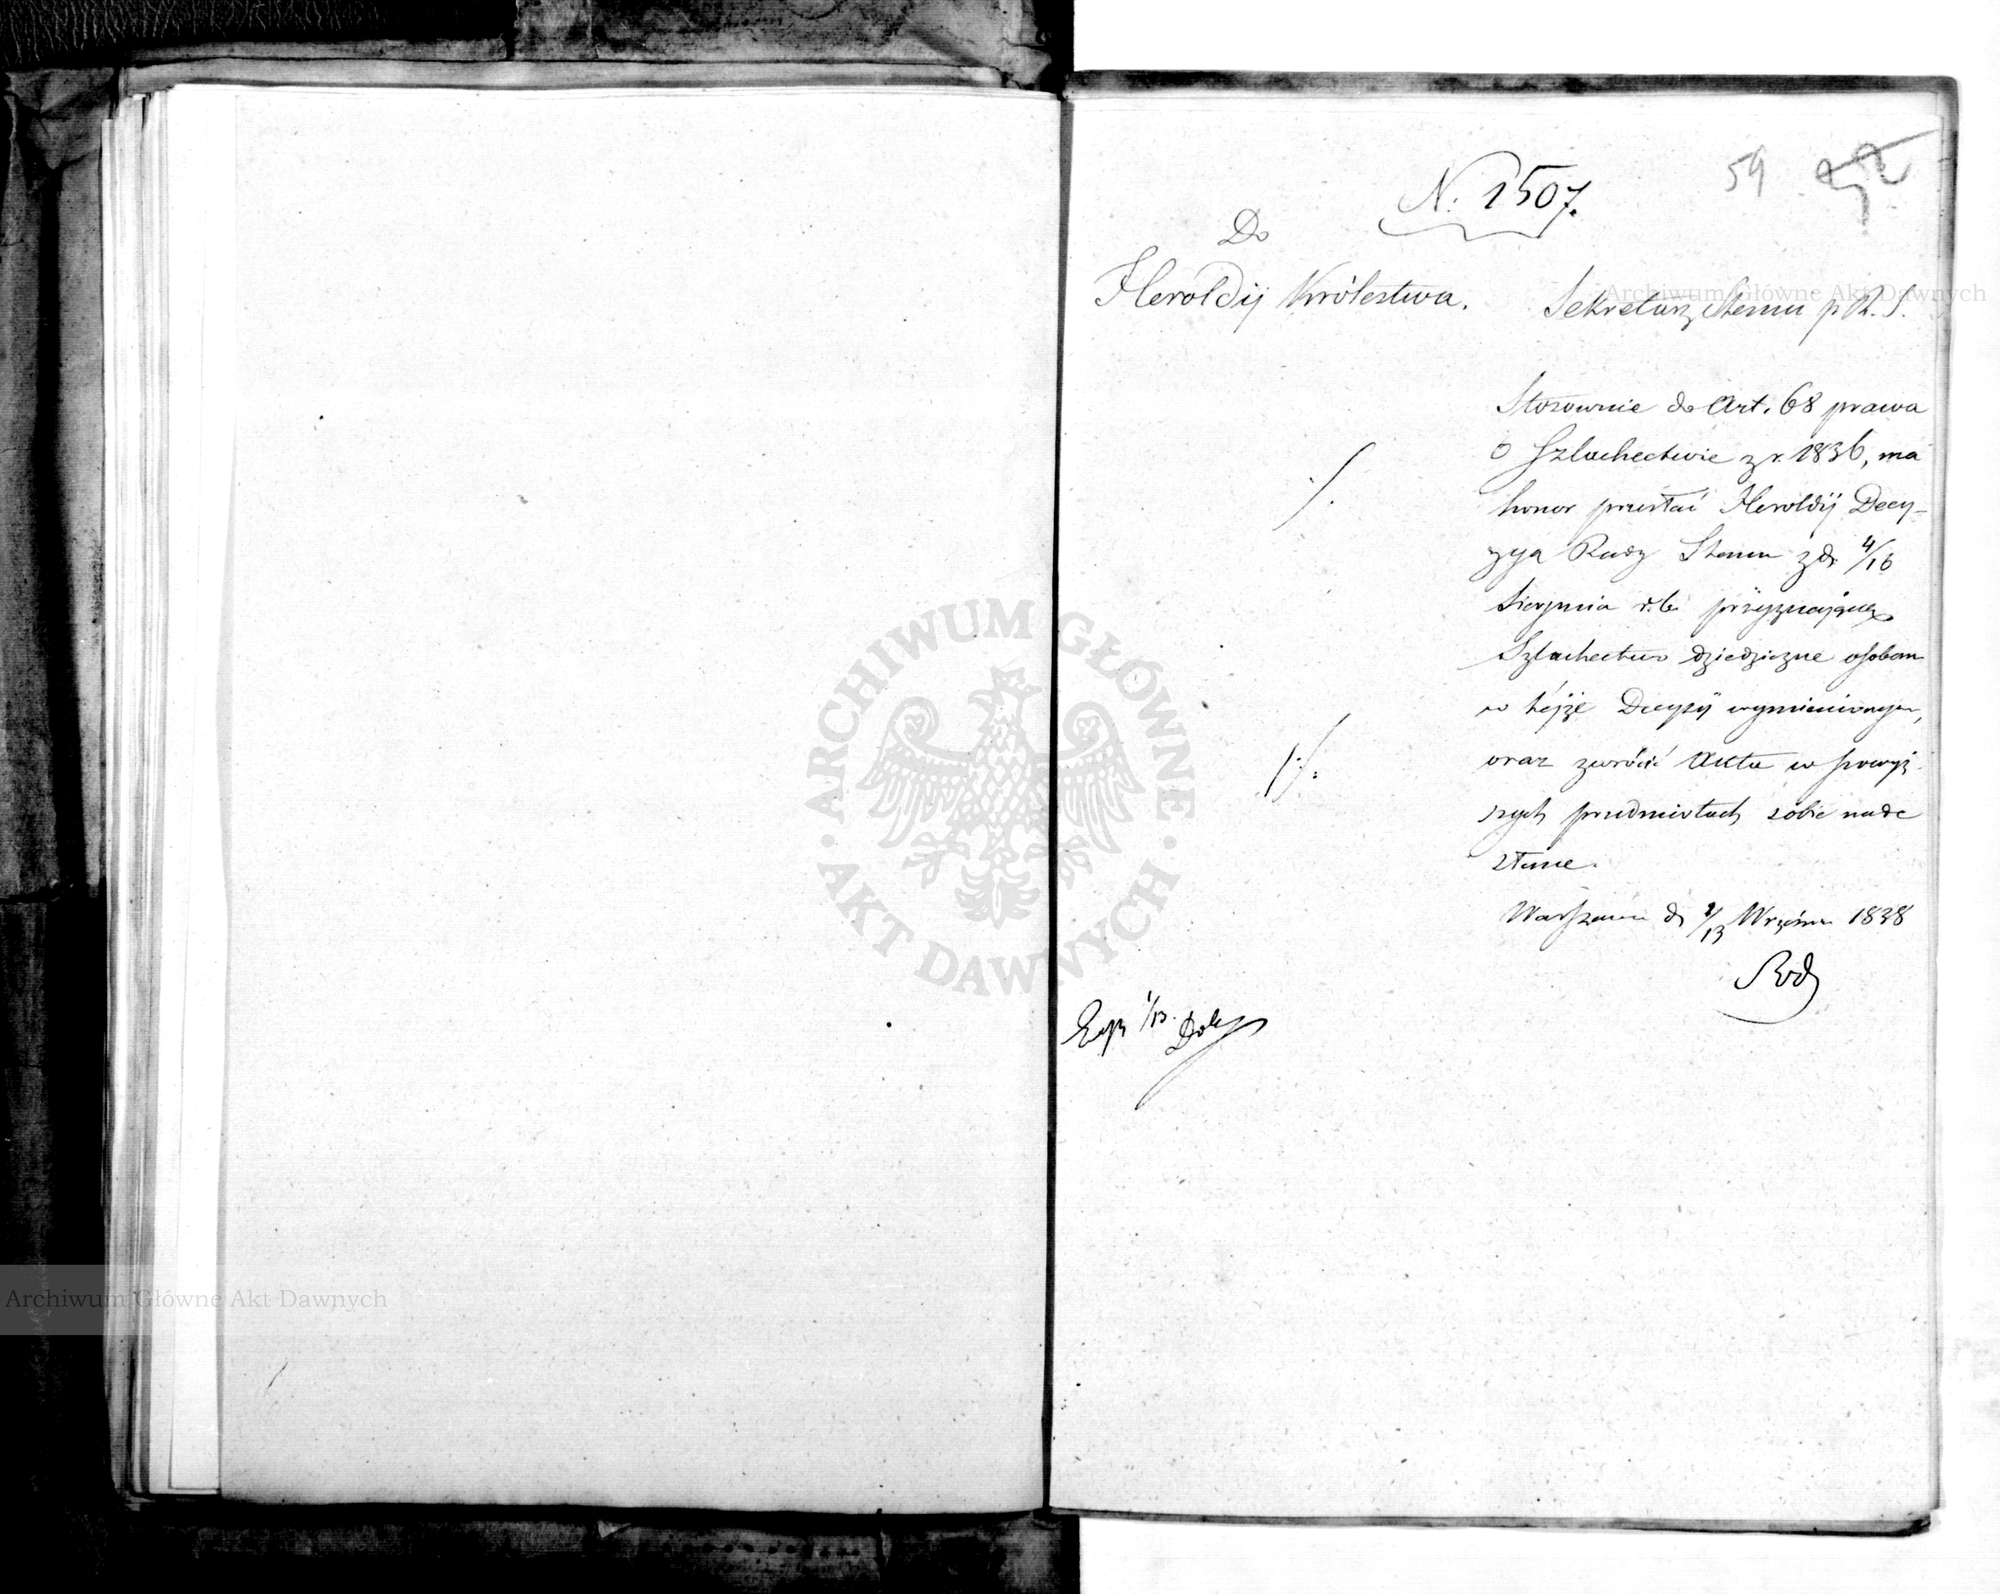 59
N. 1507.
Do
Heroldij Królestwa.
Sekretarz Stanu p R. S.
Stosownie do Art. 68 prawa
o Szlachectwie z r. 1836, ma
honor przesłać Heroldij Decy-
zyą Rady Stanu z d. 4/16
Sierpnia r. b. przyznającą
Szlachectwo dziedziczne osobom
w téjże Decyzij wymienionym,
oraz zwrócić Akta w powyż
szych przedmiotach sobie nade
słane.
Warszawa d 1/13 Września 1838
Exp 1/13.
Archiwum Główne Akt Dawnych
Archiwum Główne Akt Dawnych
ARCHIWUM GŁÓWNE
AKT DAWNYCH